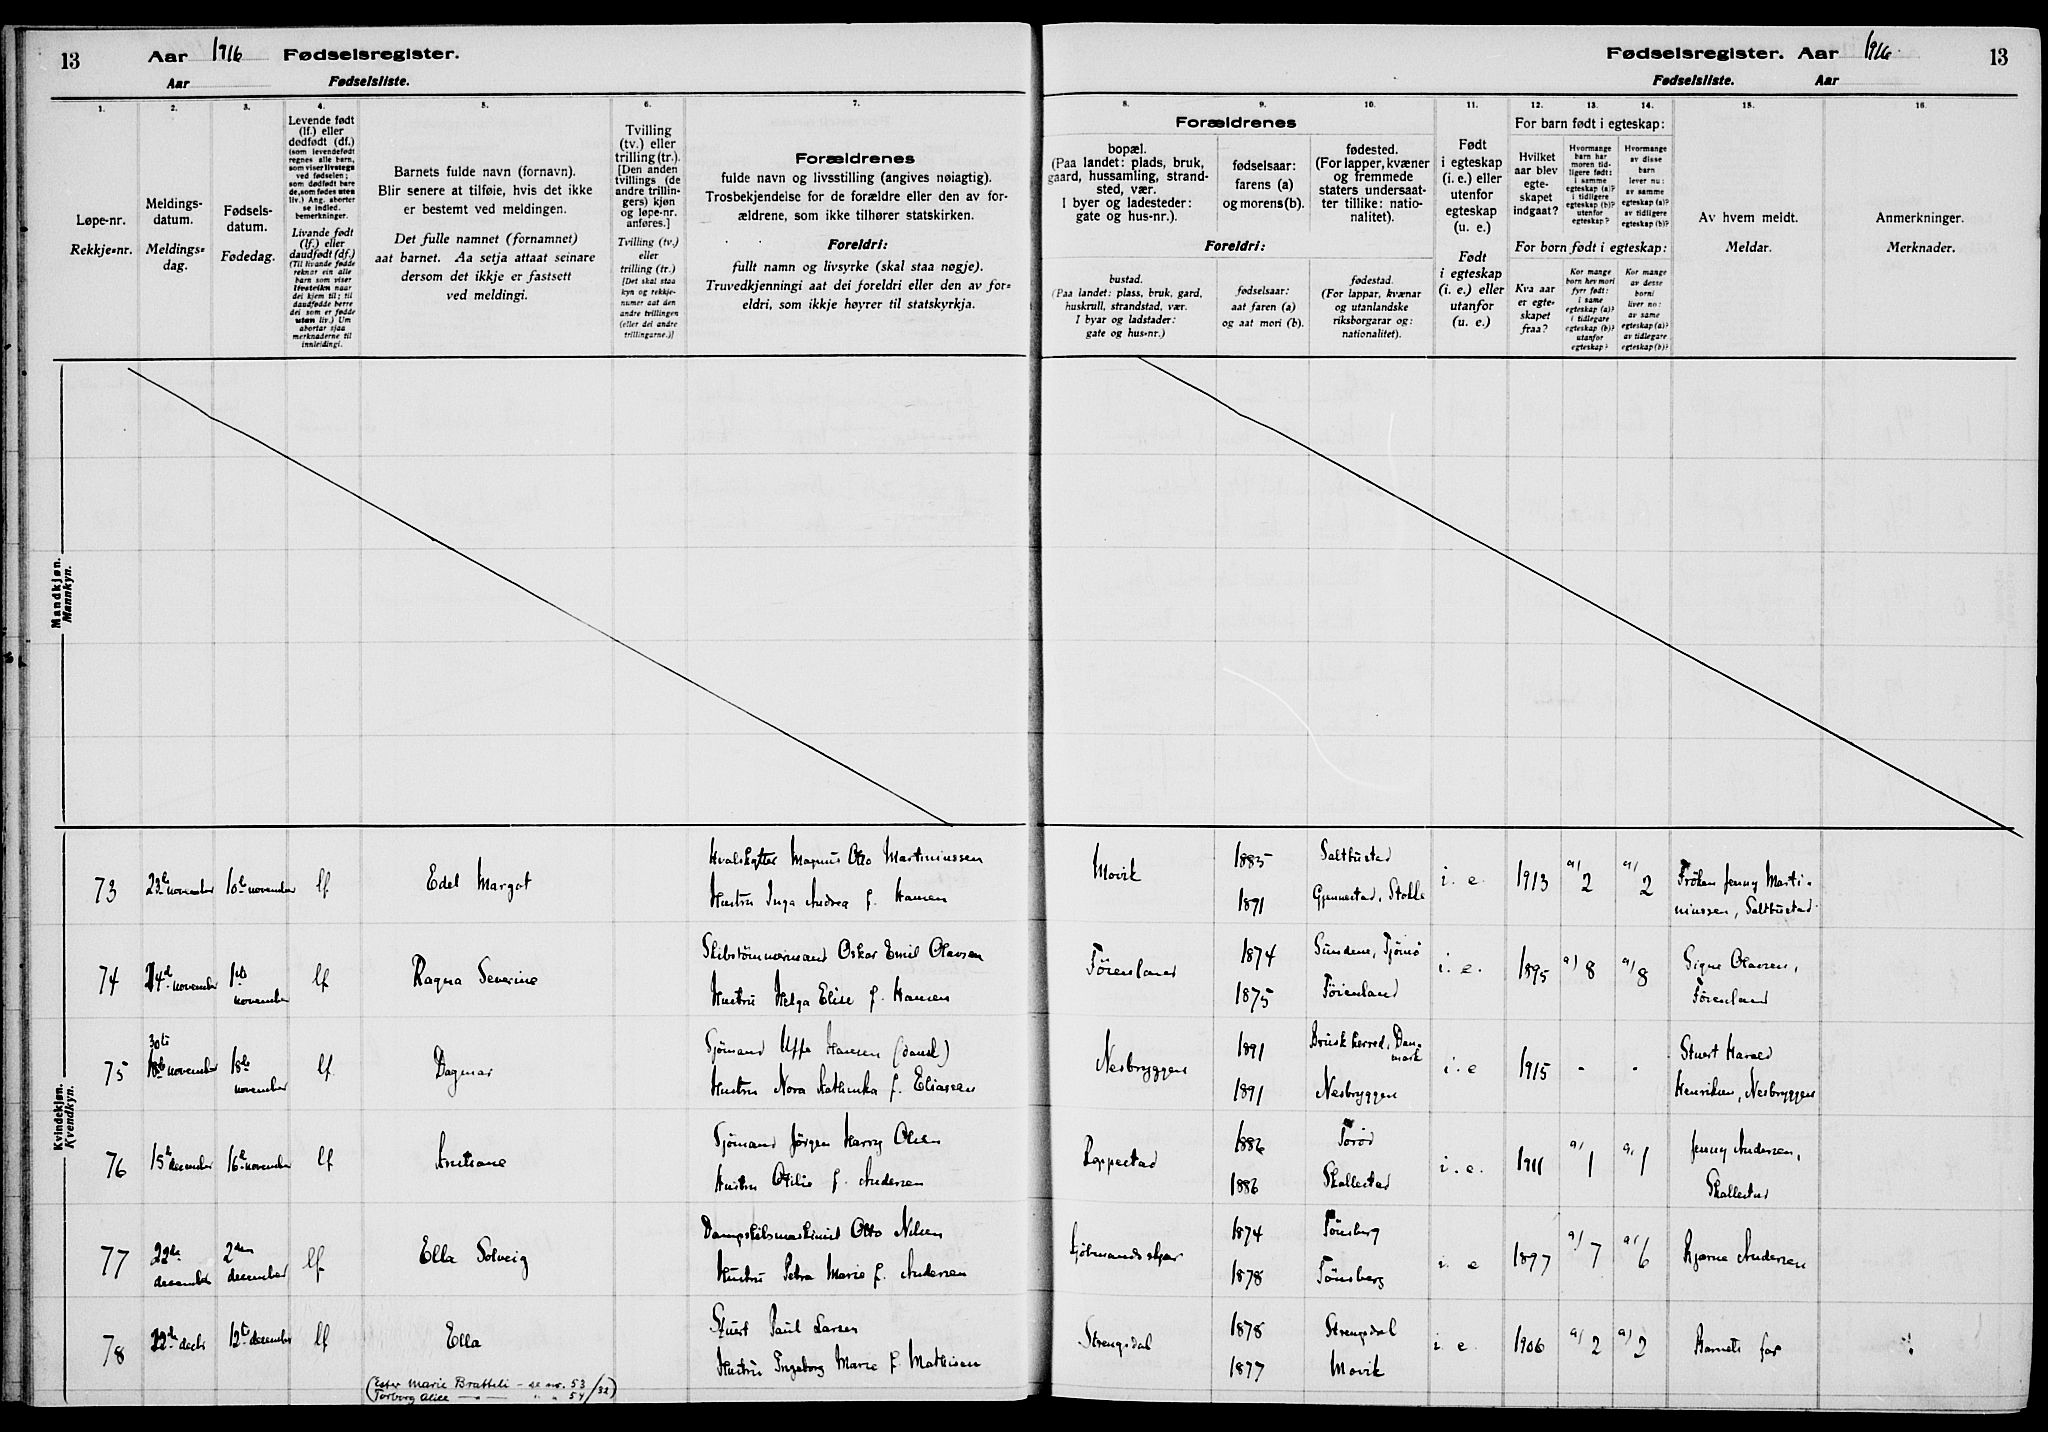 13
Aar 1916 Fødselsregister.
Aar Fødselsliste.
Fødselsregister. Aar 1916
13
Fødselsliste. Aar
1.
2.
3.
4.
5.
6.
7.
8.
9.
10.
11.
12.
13.
14.
15.
16.
Løpe-nr.
Rekkje-nr.
Meldings-
datum.
Meldings-
dag.
Fødsels-
datum.
Fødedag.
Levende født
(lf.) eller
dødfødt (df.)
(som levendefødt
regnes alle barn,
som viser livstegn
ved fødselen;
som dødfødt bare
de, som fødes uten
liv.) Ang. aborter
se indled.
bemerkninger.
Livande født
(lf.) eller
daudfødt (df.)
(Til livande fødde
reknar ein alle
barn som viser
livsteikn naar
dei kjem til; til
daudfødde berre
dei som er fødde
utan liv.) Um
abortar sjaa
merknaderne til
innleidingi.
Barnets fulde navn (fornavn).
Blir senere at tilføie, hvis det ikke
er bestemt ved meldingen.
Det fulle namnet (fornamnet)
aat barnet. Aa setja attaat seinare
dersom det ikkje er fastsett
ved meldingi.
Tvilling
(tv.) eller
trilling (tr.).
[Den anden
tvillings (de
andre trillin-
gers) kjøn
og løpe-nr.
anføres.]
Tvilling (tv.)
eller
trilling (tr.)
[Det skal staa
kyn og rekkje-
numer aat den
andre trillingen
(eller dei andre
trillingarne.)]
Forældrenes
fulde navn og livsstilling (angives nøiagtig).
Trosbekjendelse for de forældre eller den av for-
ældrene, som ikke tilhører statskirken.
Foreldri:
fullt namn og livsyrke (skal staa nøgje).
Truvedkjenningi aat dei foreldri eller den av for-
eldri, som ikkje høyrer til statskyrkja.
Forældrenes
bopæl.
(Paa landet: plads, bruk,
gaard, hussamling, strand-
sted, vær.
I byer og ladesteder:
gate og hus-nr.).
fødselsaar:
farens (a)
og morens (b).
fødested.
(For lapper, kvæner
og fremmede
staters undersaat-
ter tillike: natio-
nalitet).
Foreldri:
bustad.
(Paa landet: plass, bruk, gard,
huskrull, strandstad, vær.
I byar og ladstader:
gate og hus-nr.)
fødselsaar:
aat faren (a)
og aat mori (b).
fødestad.
(For lappar, kvænar
og utanlandske
riksborgarar og:
nationalitet).
Født
i egteskap
(i. e.) eller
utenfor
egteskap
(u. e.)
Født
i egteskap
(i. e.) eller
utanfor
(u. e.)
For barn født i egteskap:
Hvilket
aar blev
egte-
skapet
indgaat?
Hvormange
barn har
moren tid-
ligere født:
i samme
egteskap (a)?
i tidligere
egteskap (b)?
utenfor
egteskap?
Hvormange
av disse
barn
lever nu:
av samme
egteskap (a)?
av tidligere
egteskap (b)?
For born født i egteskap:
Kva aar
er egte-
skapet
fraa?
Kor mange
born hev mori
fyrr født:
i same
egteskap (a)?
i tidlegare
egteskap (b)?
utanfor
egteskap?
Kor mange
av desse
borni
liver no:
av same
egteskap (a)?
av tidlegare
egteskap (b)?
Av hvem meldt.
Meldar.
Anmerkninger.
Merknader.
Mandkjøn.
Mannkyn.
Kvindekjøn.
Kvendkyn.
73 23de november 10de november lf Edel Margot
Hvalskytter Magnus Otto Martiniussen
Hustru Inga Andrea f. Hansen
Movik 1885 Saltbustad
1891 Gjennestad, Stokke
i. e. 1913 a/2 a/2 Frøken Jenny Marti-
niussen, Saltbustad
74 24de november 1ste november lf Ragna Severine
Skibstømmermand Oskar Emil Olavsen
Hustru Helga Elise f. Hansen
Føienland 1874 Sundene, Tjømø
1875 Føienland
i. e. 1895 a/8 a/8 Signe Olavsen,
Føienland
75 30te november 18de november lf Dagmar
Sjømand Uffe Hansen (dansk)
Hustru Nora Kathinka f. Eliassen
Nesbryggen 1891 Brusk herred, Dan-
mark
1891 Nesbryggen
i. e 1915 - - Stuert Harald
Henriksen, Nesbryggen
76 15de december 16de november lf
Sjømand Jörgen Harry Olsen
Hustru Otilie f. Andersen
Roppestad 1886 Torød
1886 Skallestad
i. e. 1911 a/1 a/1 Jenny Andersen,
Skallestad
77 22de december 2den december lf Ella Solveig
Dampskibsmaskinist Otto Nilsen
Hustru Petra Marie f. Andersen
Kjøbmandsskjær 1874 Tønsberg
1878 Tønsberg
i. e 1897 a/7 a/6 Bjarne Andersen
78 22de decbr 12te december lf Ella
Stuert Paul Larsen
Hustru Ingeborg Marie f. Mathisen
Strengsdal 1878 Strengsdal
1877 Movik
i. e. 1906 a/2 a/2 Barnets far
(Ester Marie Bratteli - se nr. 53/32)
(Torborg Alice — " " 54